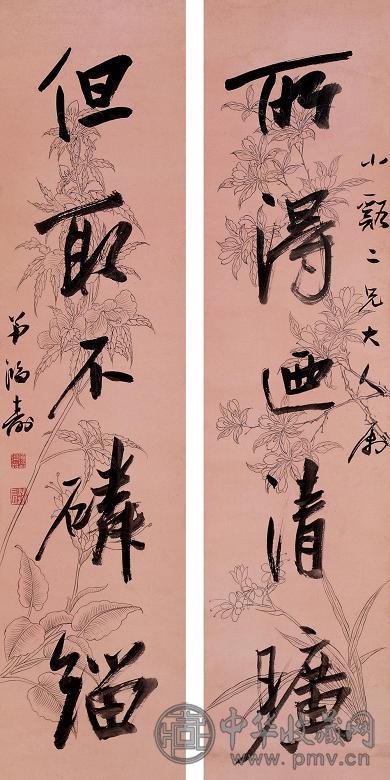 小谿二兄大人屬
所得迺清曠
但取不磷緇
弟壽
中华收藏网
www.pmv.cn